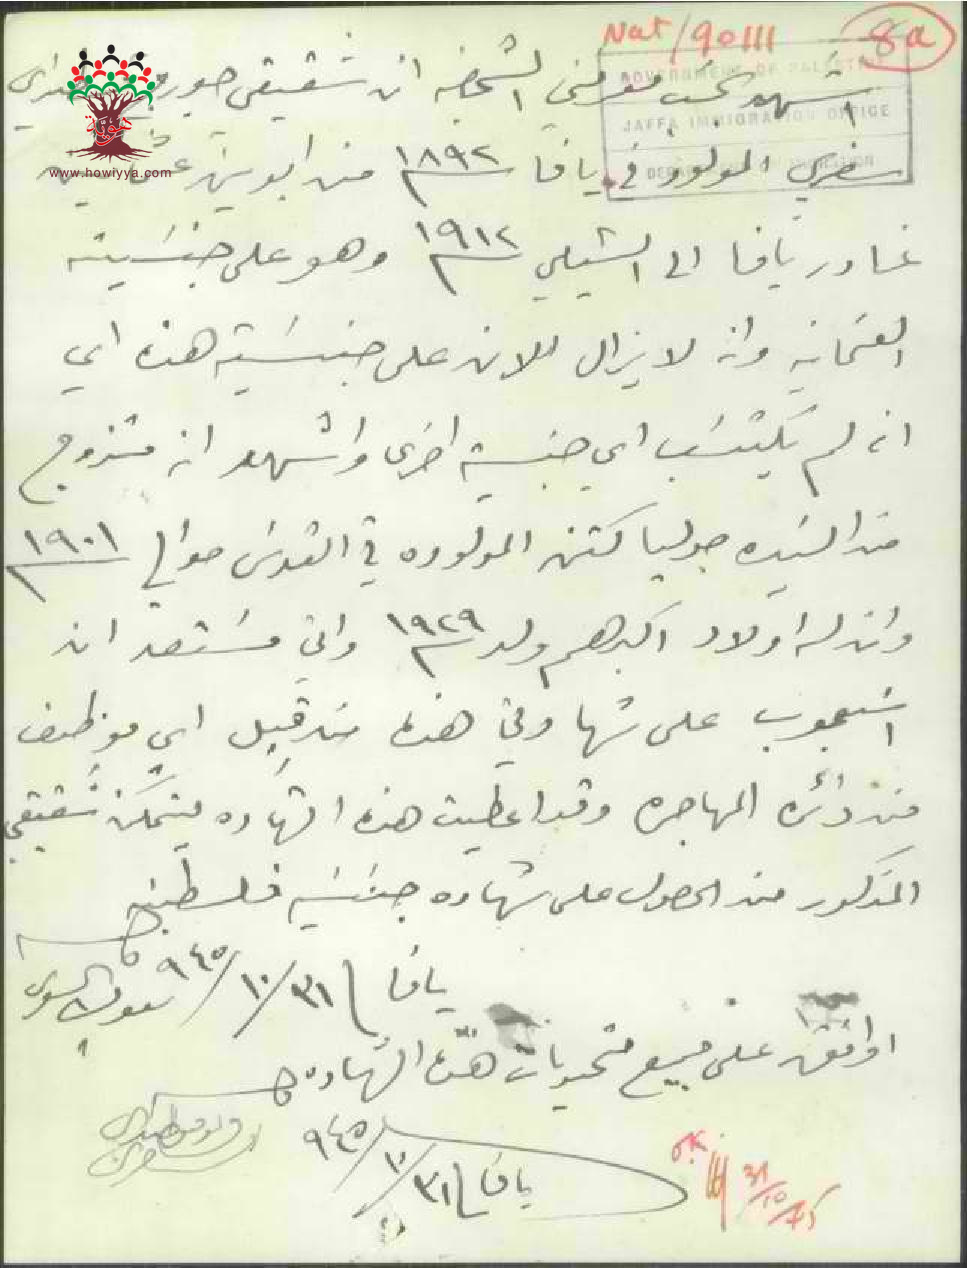 Nat/90111
8a
GOVERNMENT OF PALESTINE
JAFFA IMMIGRATION OFFICE
www.howiyya.com
اشهد بحسب معرفتي الشخصية ان شقيقي جورج
المولود في يافا ١٨٩٢ من ابوين
غادر يافا الى التشيلي ١٩١٢ وهو على جنسيته
العثمانيه وانه لا يزال للان على جنسيته هذه اي
انه لم يكتسب اي جنسية اخرى واشهد انه متزوج
من السيده جوليا كتن المولوده في القدس حوالي ١٩٠١
وان له اولاد اكبرهم ولد ١٩٢٩ واني مستعد ان
استجوب على شهادتي هذه من قبل اي موظف
من دائره المهاجره وقد اعطيت هذه الشهاده ليتمكن شقيقي
المذكور من الحصول على شهاده جنسيه فلسطينيه
يافا ٣١/١٠/٩٤٥
اوافق على جميع محتويات هذه الشهاده
يافا ٣١/١٠/٩٤٥
O.K
31/10/45